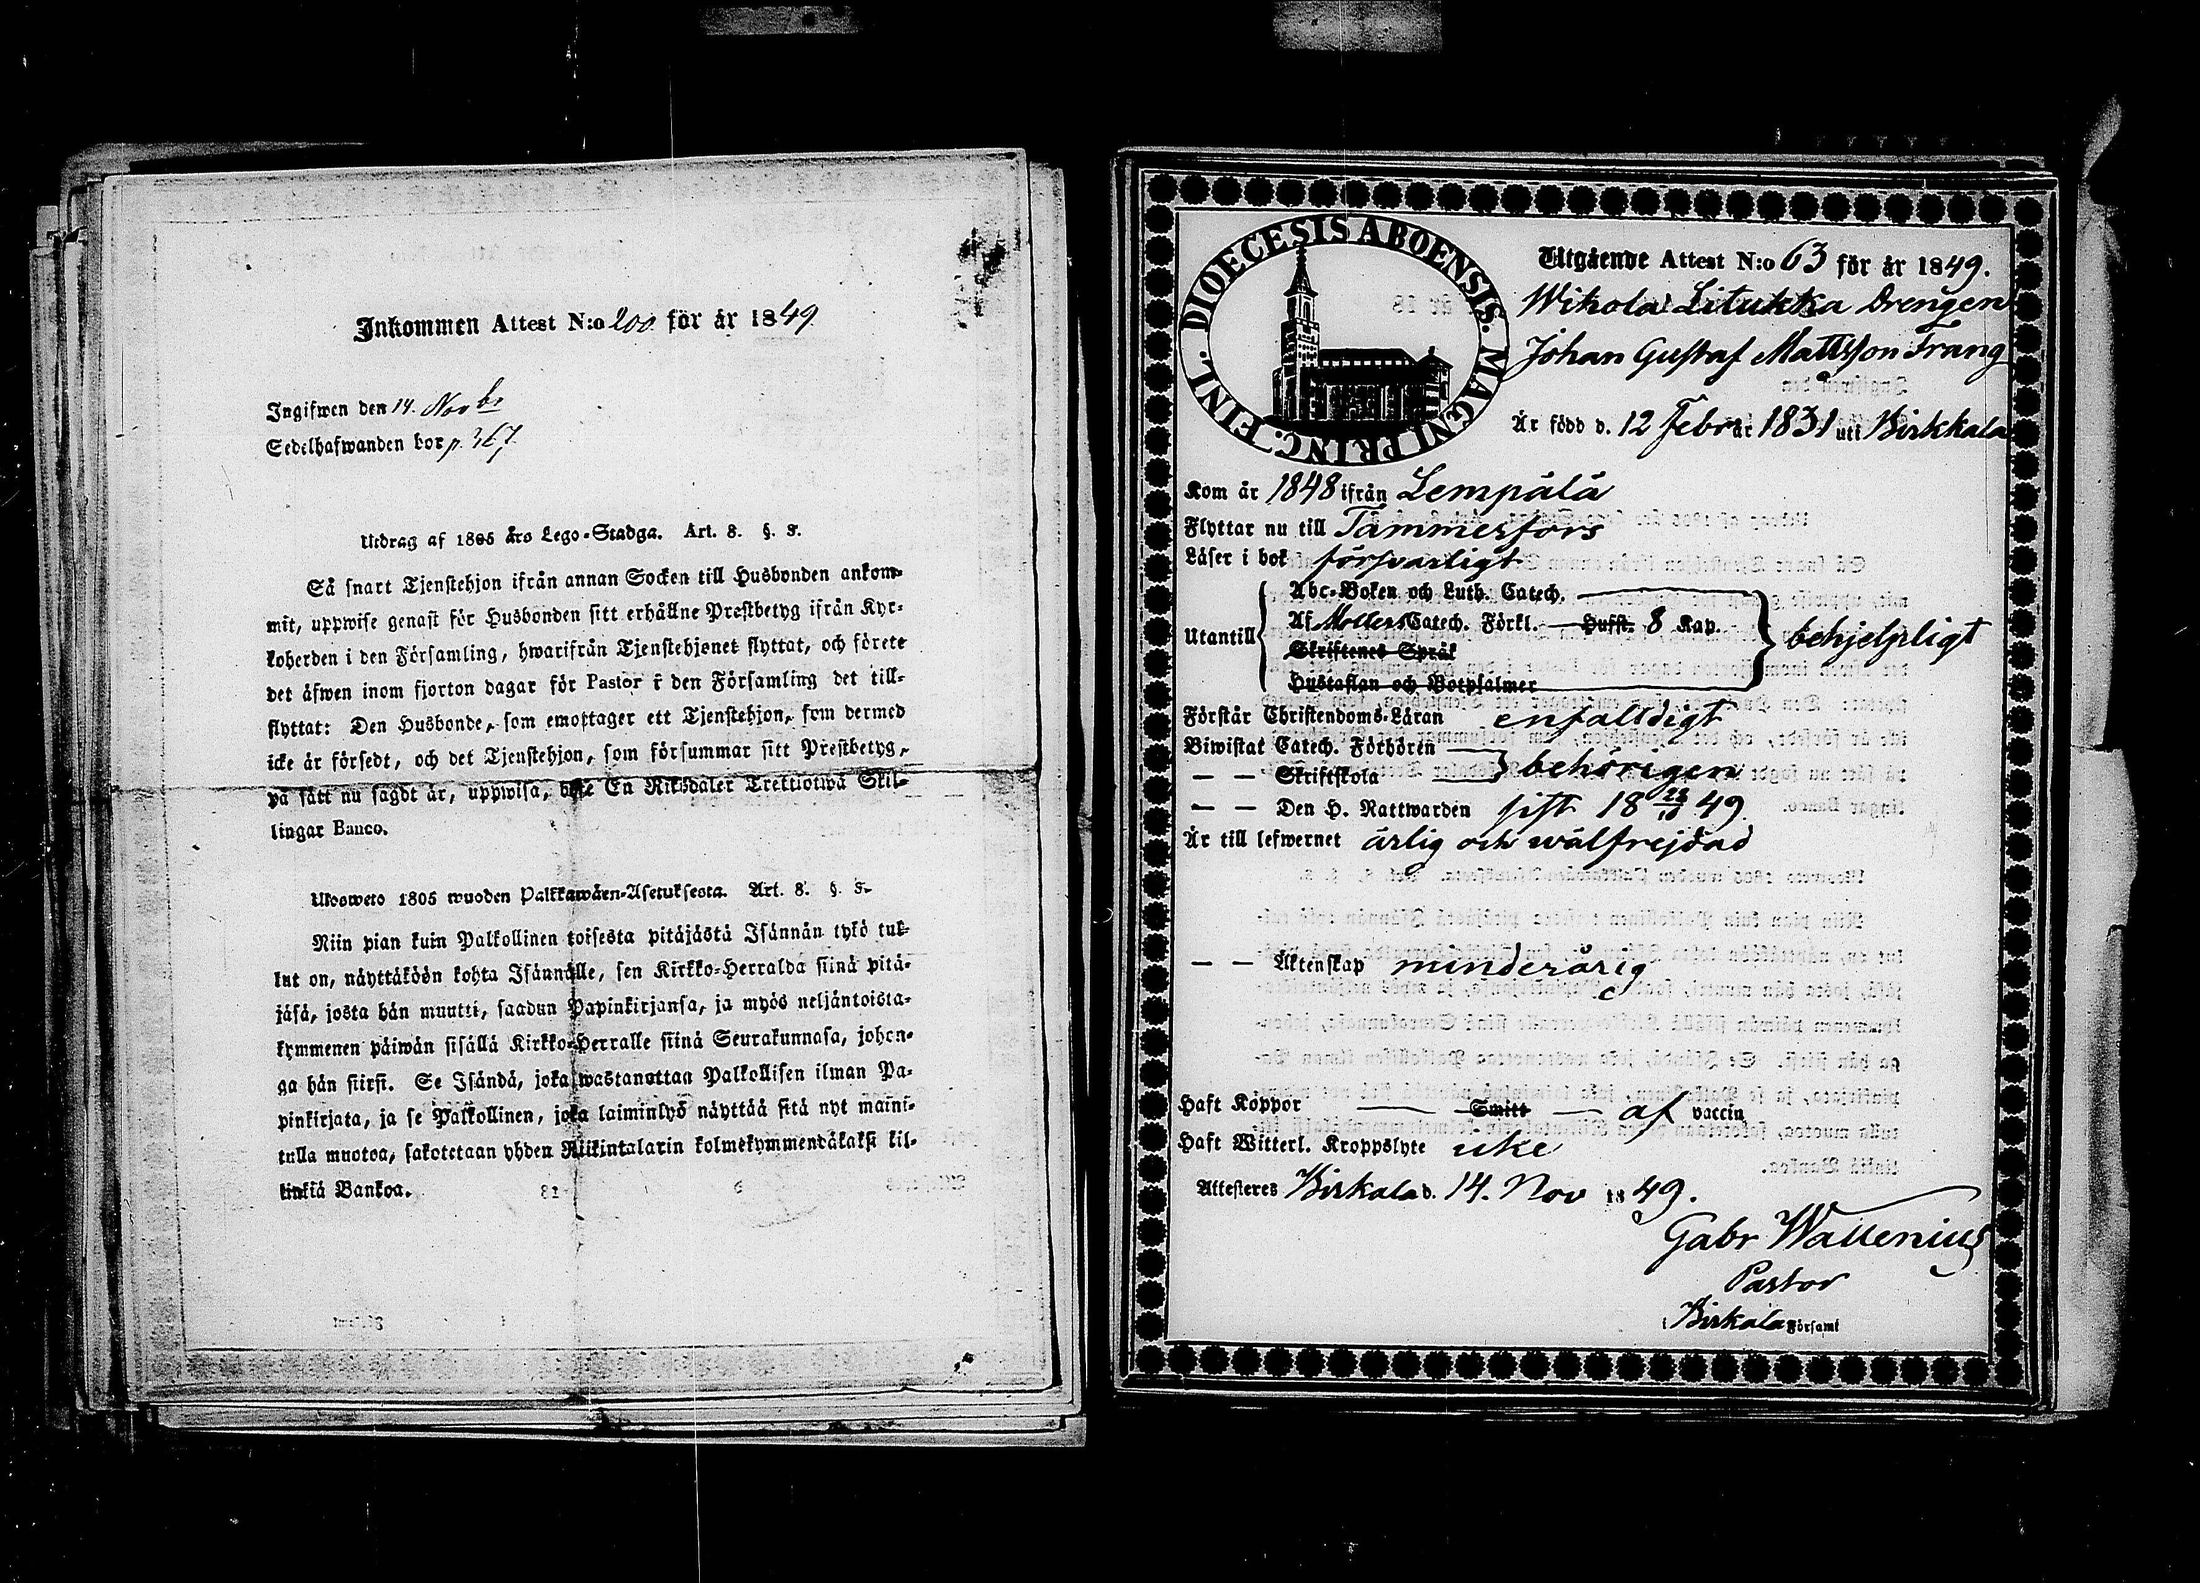 Inkommen Attest N:o 200 för år 1849
Ingifwen den 14. Novbr
Sedelhafwanden bor p. 367.
Utdrag af 1805 års Lego-Stadga. Art. 8. §. 3.
Så snart Tjenstehjon ifrån annan Socken till Husbonden ankom-
mit, uppwise genast för Husbonden sitt erhållne Prestbetyg ifrån Kyr-
koherden i den Församling, hwarifrån Tjenstehjonet flyttat, och förete
det äfwen inom fjorton dagar för Pastor i den Församling det till-
flyttat: Den Husbonde, som emottager ett Tjenstehjon, som dermed
icke är försedt, och det Tjenstehjon, som försummar sitt Prestbetyg,
på sätt nu sagdt är, uppwisa, böte En Riksdaler Trettiotwå Skil-
lingar Banco.
Ulosweto 1805 wuoden Palkkawäen-Asetuksesta. Art. 8. §. 3.
Niin pian kuin Palkollinen toisesta pitäjästä Isännän tykö tul-
lut on, näyttäköön kohta Isännälle, sen Kirkko-Herralda siinä pitä-
jäsä, josta hän muutti, saadun Papinkirjansa, ja myös neljäntoista-
kymmenen päiwän sisällä Kirkko-Herralle siinä Seurakunnasa, johon-
ga hän siirsi. Se Isändä, joka wastanottaa Palkollisen ilman Pa-
pinkirjata, ja se Palkollinen, joka laiminlyö näyttää sitä nyt maini-
tulla muotoa, sakotetaan yhden Riikintalarin kolmekymmendäkaksi kil-
linkiä Bankoa.
DIOECESIS ABOENSIS. MAGNI PRINC. FINL.
Utgående Attest N:o 63 för år 1849.
Wihola Litukka Drengen
Johan Gustaf Mattsson Frang
Är född d. 12 Febr år 1831 uti Birkkala
Kom år 1848 ifrån Lempälä
Flyttar nu till Tammerfors
Läser i bok försvarligt
Abc-Boken och Luth. Catech.
Utantill Af Mollers Catech. Förkl. — Hufst. 8 Kap. behjelpligt
Skriftenes Språk
Hustaflan och Botpsalmer
Förstår Christendoms-Läran enfalldigt
Biwistat Catech. Förhören
— — Skriftskola behörigen
— — Den H. Nattwarden sist 18 28/10 49
Är till lefwernet ärlig och wälfrejdad
— — Äktenskap minderårig
Haft Koppor — Smitt — af vaccin
Haft Witterl. Kroppslyte icke
Attesteres Birkala d. 14. Nov 1849.
Gabr Wallenius
Pastor
i Birkala Församl